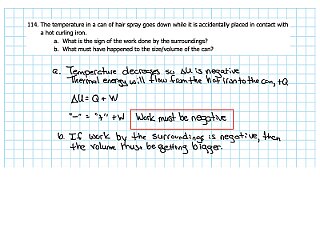 114. The temperature in a can of hair spray goes down while it is accidentally placed in contact with
a hot curling iron.
a. What is the sign of the work done by the surroundings?
b. What must have happened to the size/volume of the can?
a. Temperature decreases so ΔU is negative
Thermal energy will flow from the hot iron to the can, +Q
ΔU = Q + W
"-" = "+" + W Work must be negative
b. If work by the surroundings is negative, then
the volume must be getting bigger.